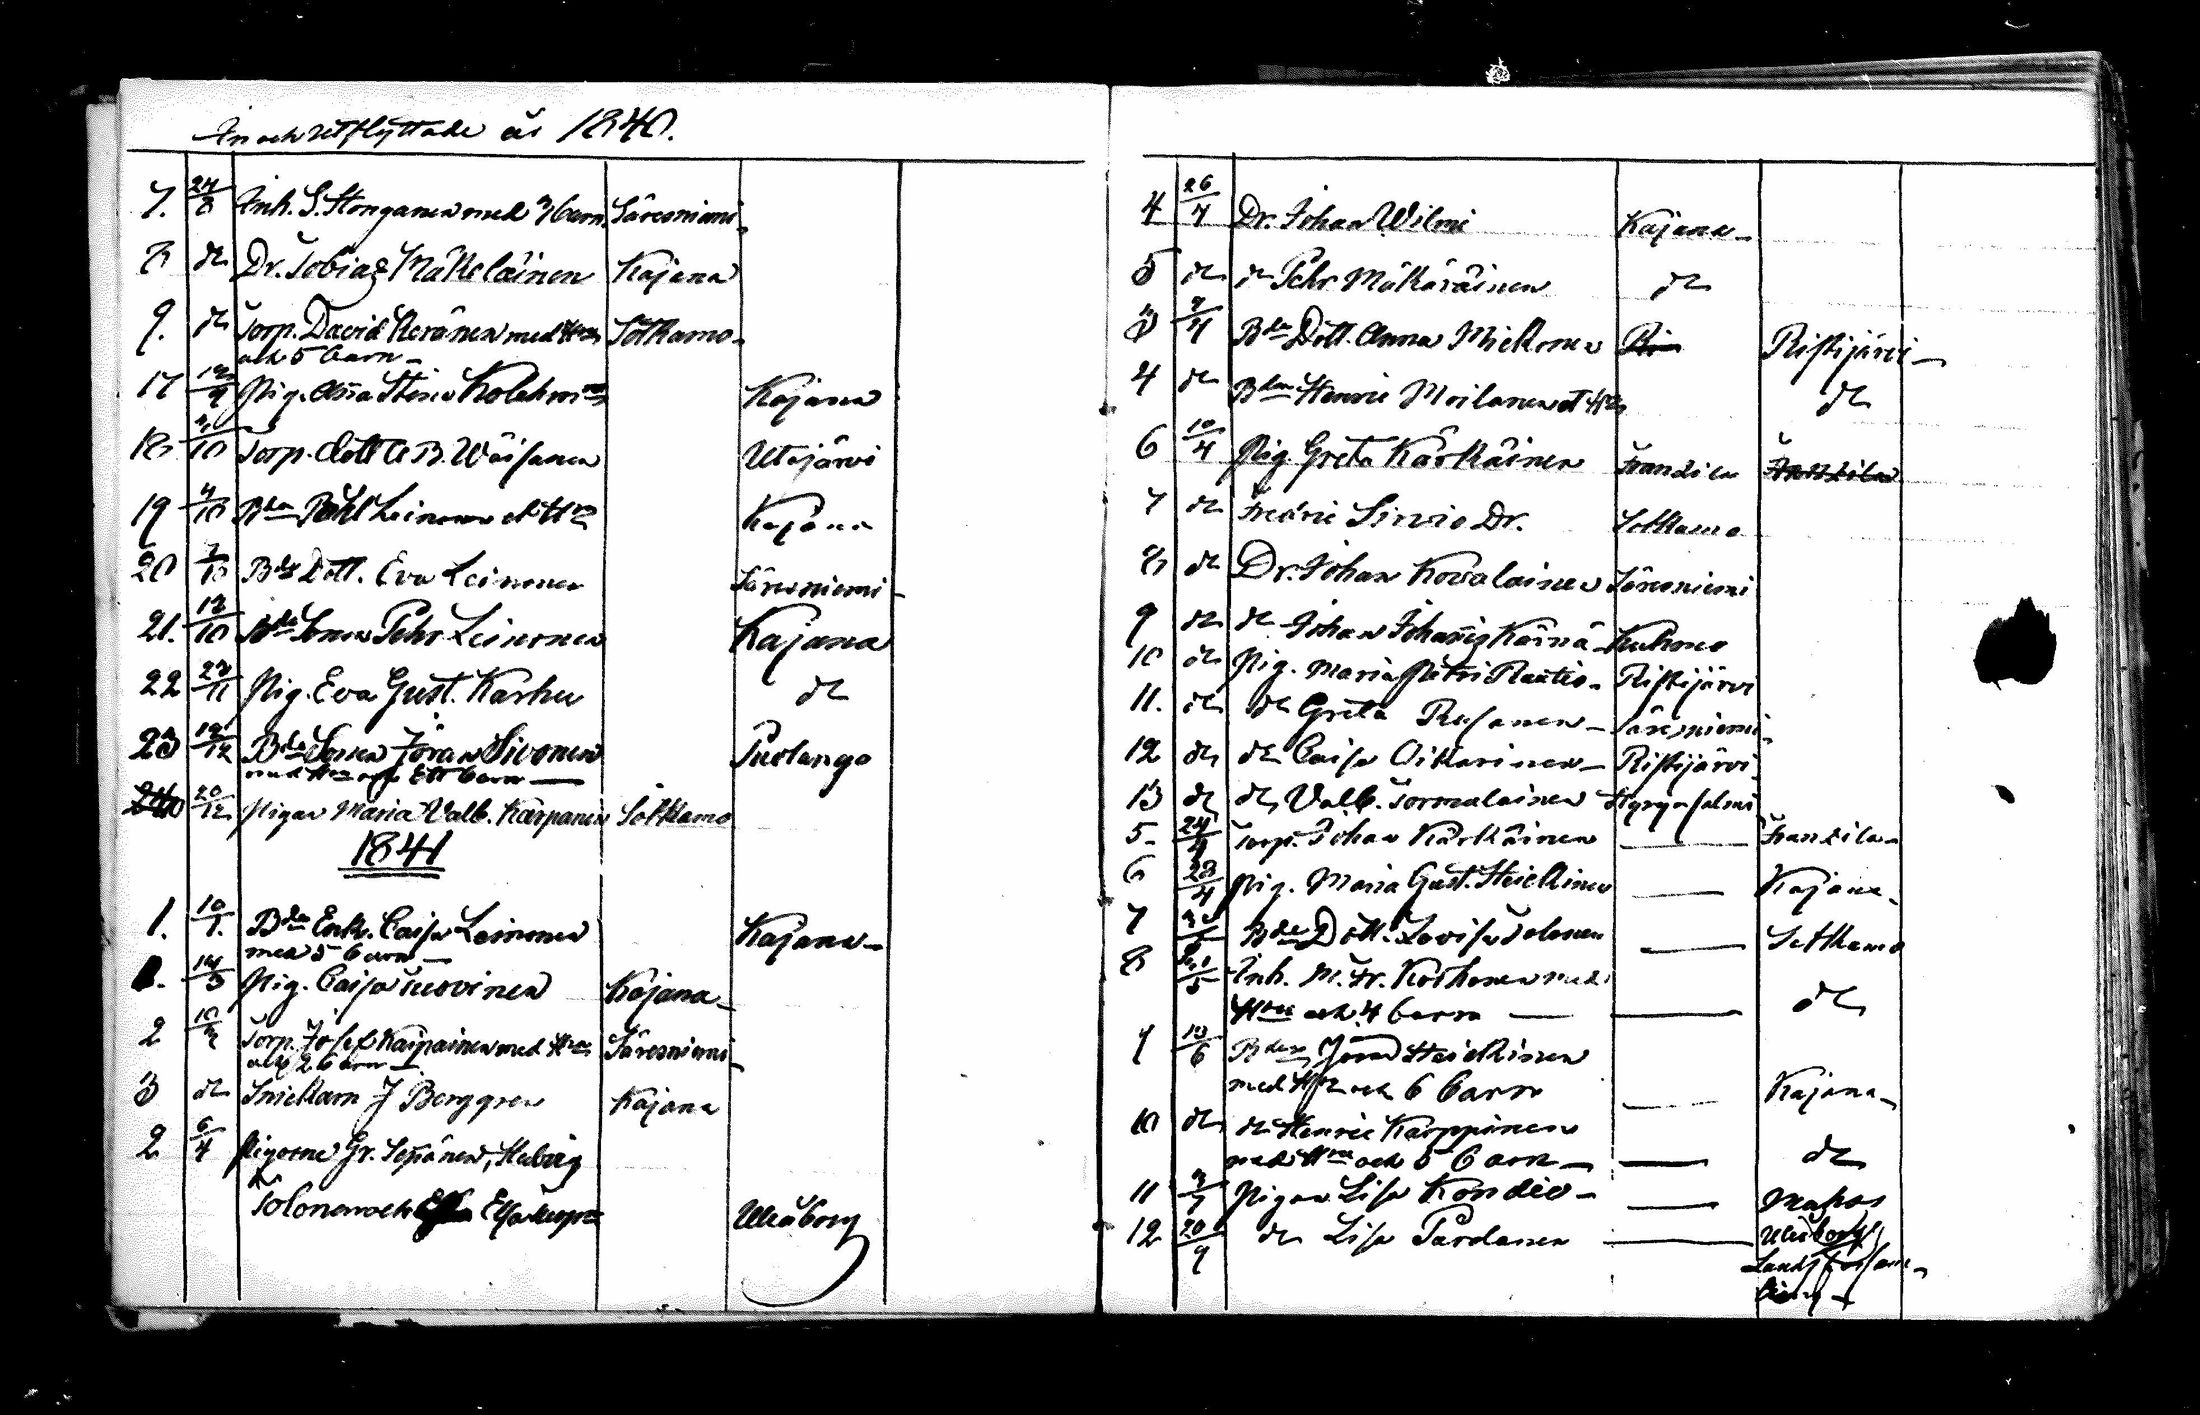 In och Utflyttade år 1840.
7. 24/8 Inh. S. Honganen med 3 barn Säresniemi
8 do Dr. Tobias Mäkeläinen Kajana
9. do Torp. David Keränen med Hu Sotkamo
och 5 barn
17 Pig. Stina Kolehm Kajana
18 /10 Torp. dott. Wäisänen Utajärvi
19 4/10 Bdn Påhl Leinonen et Hu Kajana
20 7/10 Bds Dott. Eva Leinonen Säresniemi
21. 12/10 Bde Sonen Pehr Leinonen Kajana
22 27/11 Pig. Eva Gust. Karhu do
23 12/12 Bde Sonen Jöran Sivonen Puolango
med Hu och Ett barn
20/12 Pigan Maria Valb. Karpanen Sotkamo
1841
1. 10/1. Bde Enk. Caisa Leinonen Kajana
med 5 barn
1. 14/3 Pig. Caisa Tuovinen Kajana
2 Torp. Josef Kaipainen med Hu Säresniemi
och 2 barn
3 do Snickarn J Berggren Kajana
2 6/4 Pigorne Gr. Seppänen, Hedvig
Tolonen och Elsa Uleåborg
4 26/4 Dr. Johan Wilmi Kajana
5 do do Pehr Mäkäräinen do
3 7/4 Bde Dott. Anna Mickonen Ri Ristijärvi
4 do Bden Henric Moilanen et Hu do
6 10/4 Pig. Greta Kärkäinen Frantsila Frantsila
7 do Fredric Sirvio Dr. Sotkamo
8 do Dr. Johan Kovalainen Säresniemi
9 do do Johan Johansson Kärnä Kuhmo
10 do Pig. Maria Petri Rautio Ristijärvi
11. do do Greta Rusanen Säresniemi
12 do do Caisa Oikarinen Ristijärvi
13 do do Valb. Tormalainen Hyrynsalmi
5 24/4 Torp. Johan Kärkäinen Frantsila
6 28/4 Pig. Maria Gust. Heickinen Kajana
7 Bde Dott. Lovisa Tolonen Sotkamo
8 Inh. M. Fr. Korhonen med
Hu och 4 barn do
9 10/6 Bden Jöran Heickinen
med Hu och 6 barn Kajana
10 do do Henric Karppinen
med Hu och 5 barn do
11 Pigan Lisa Kondio Muhos
12 20/9 do Lisa Pardanen Uleåborgs
Lands Församling